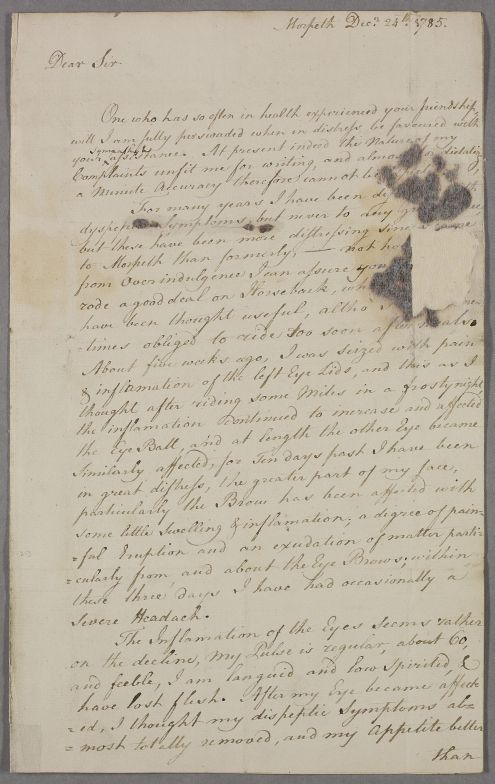 Morpeth Dec.r 24th 1785.
Dear Sir
One who has so often in health experienced your friendship,
will I am fully perswaded when in distress, be favoured with
your sympathy & assistance. At present indeed the Nature of my
Complaints unfit me for writing, and almost for dictating
a Minute Accuracy therefore cannot be
For many years I have been
dyspeptic Symptoms, but never to any
but these have been more distressing since I came
to Morpeth than formerly, — not
from Overindulgence I can assure you
rode a good deal on Horseback,
have been thought useful, altho
-times obliged to ride too soon after meals.
About five weeks ago, I was seized with pain
& inflamation of the left Eye Lids, and this as I
thought after riding some Miles in a frosty night
the inflamation Continued to increase and affected
the Eye Ball, and at length the other Eye became
similarly affected, for Ten days past I have been
in great distress, the greater part of my face,
particularly the Brow has been affected with
some little Swelling & inflamation; a degree of pain=
=ful Eruption and an exudation of matter parti=
=cularly from, and about the Eye Brows, within
these three days I have had occasionally a
severe Headach.
The Inflamation of the Eyes seems rather
on the decline, My Pulse is regular, about 60,
and feeble, I am languid and low Spirited, &
have lost flesh. After my Eye became affect-
=ed, I thought my dispeptic Symptoms al=
=most totally removed, and my Appetite better
than